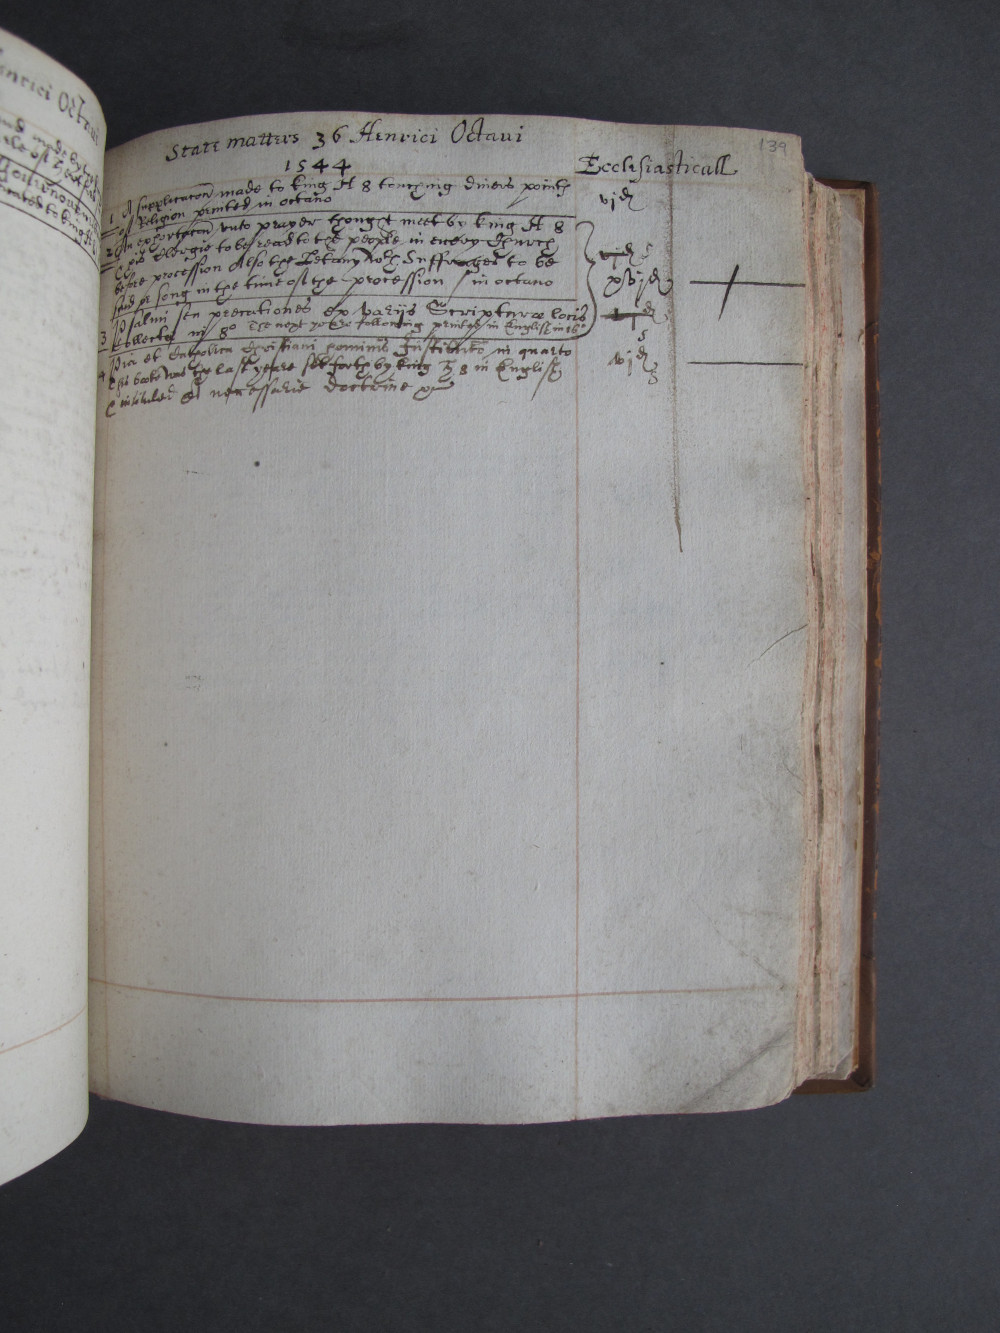 139
State matters 36 Henrici Octaui
1544
Ecclesiasticall
1 A supplicacon made to king H 8 touching diuers points vjd
of Religion printed in octauo
2 An exhortacon vnto prayer thought meet by king H 8
& his Clergie to be read to the people in euery Church
before procession Also the Letany wth Suffrages to be
said or song in the time of the procession / in octauo xvjd
3 Psalmi seu precationes ex varijs Scripturæ locis
Collectæ in 8o The next yeare following printed in English in 16o
4 Pia et Catholica Christiani hominis Institutio in quarto vjd
this booke was the last yeare set forth by king H 8 in English
& intituled A necessarie doctrine &c